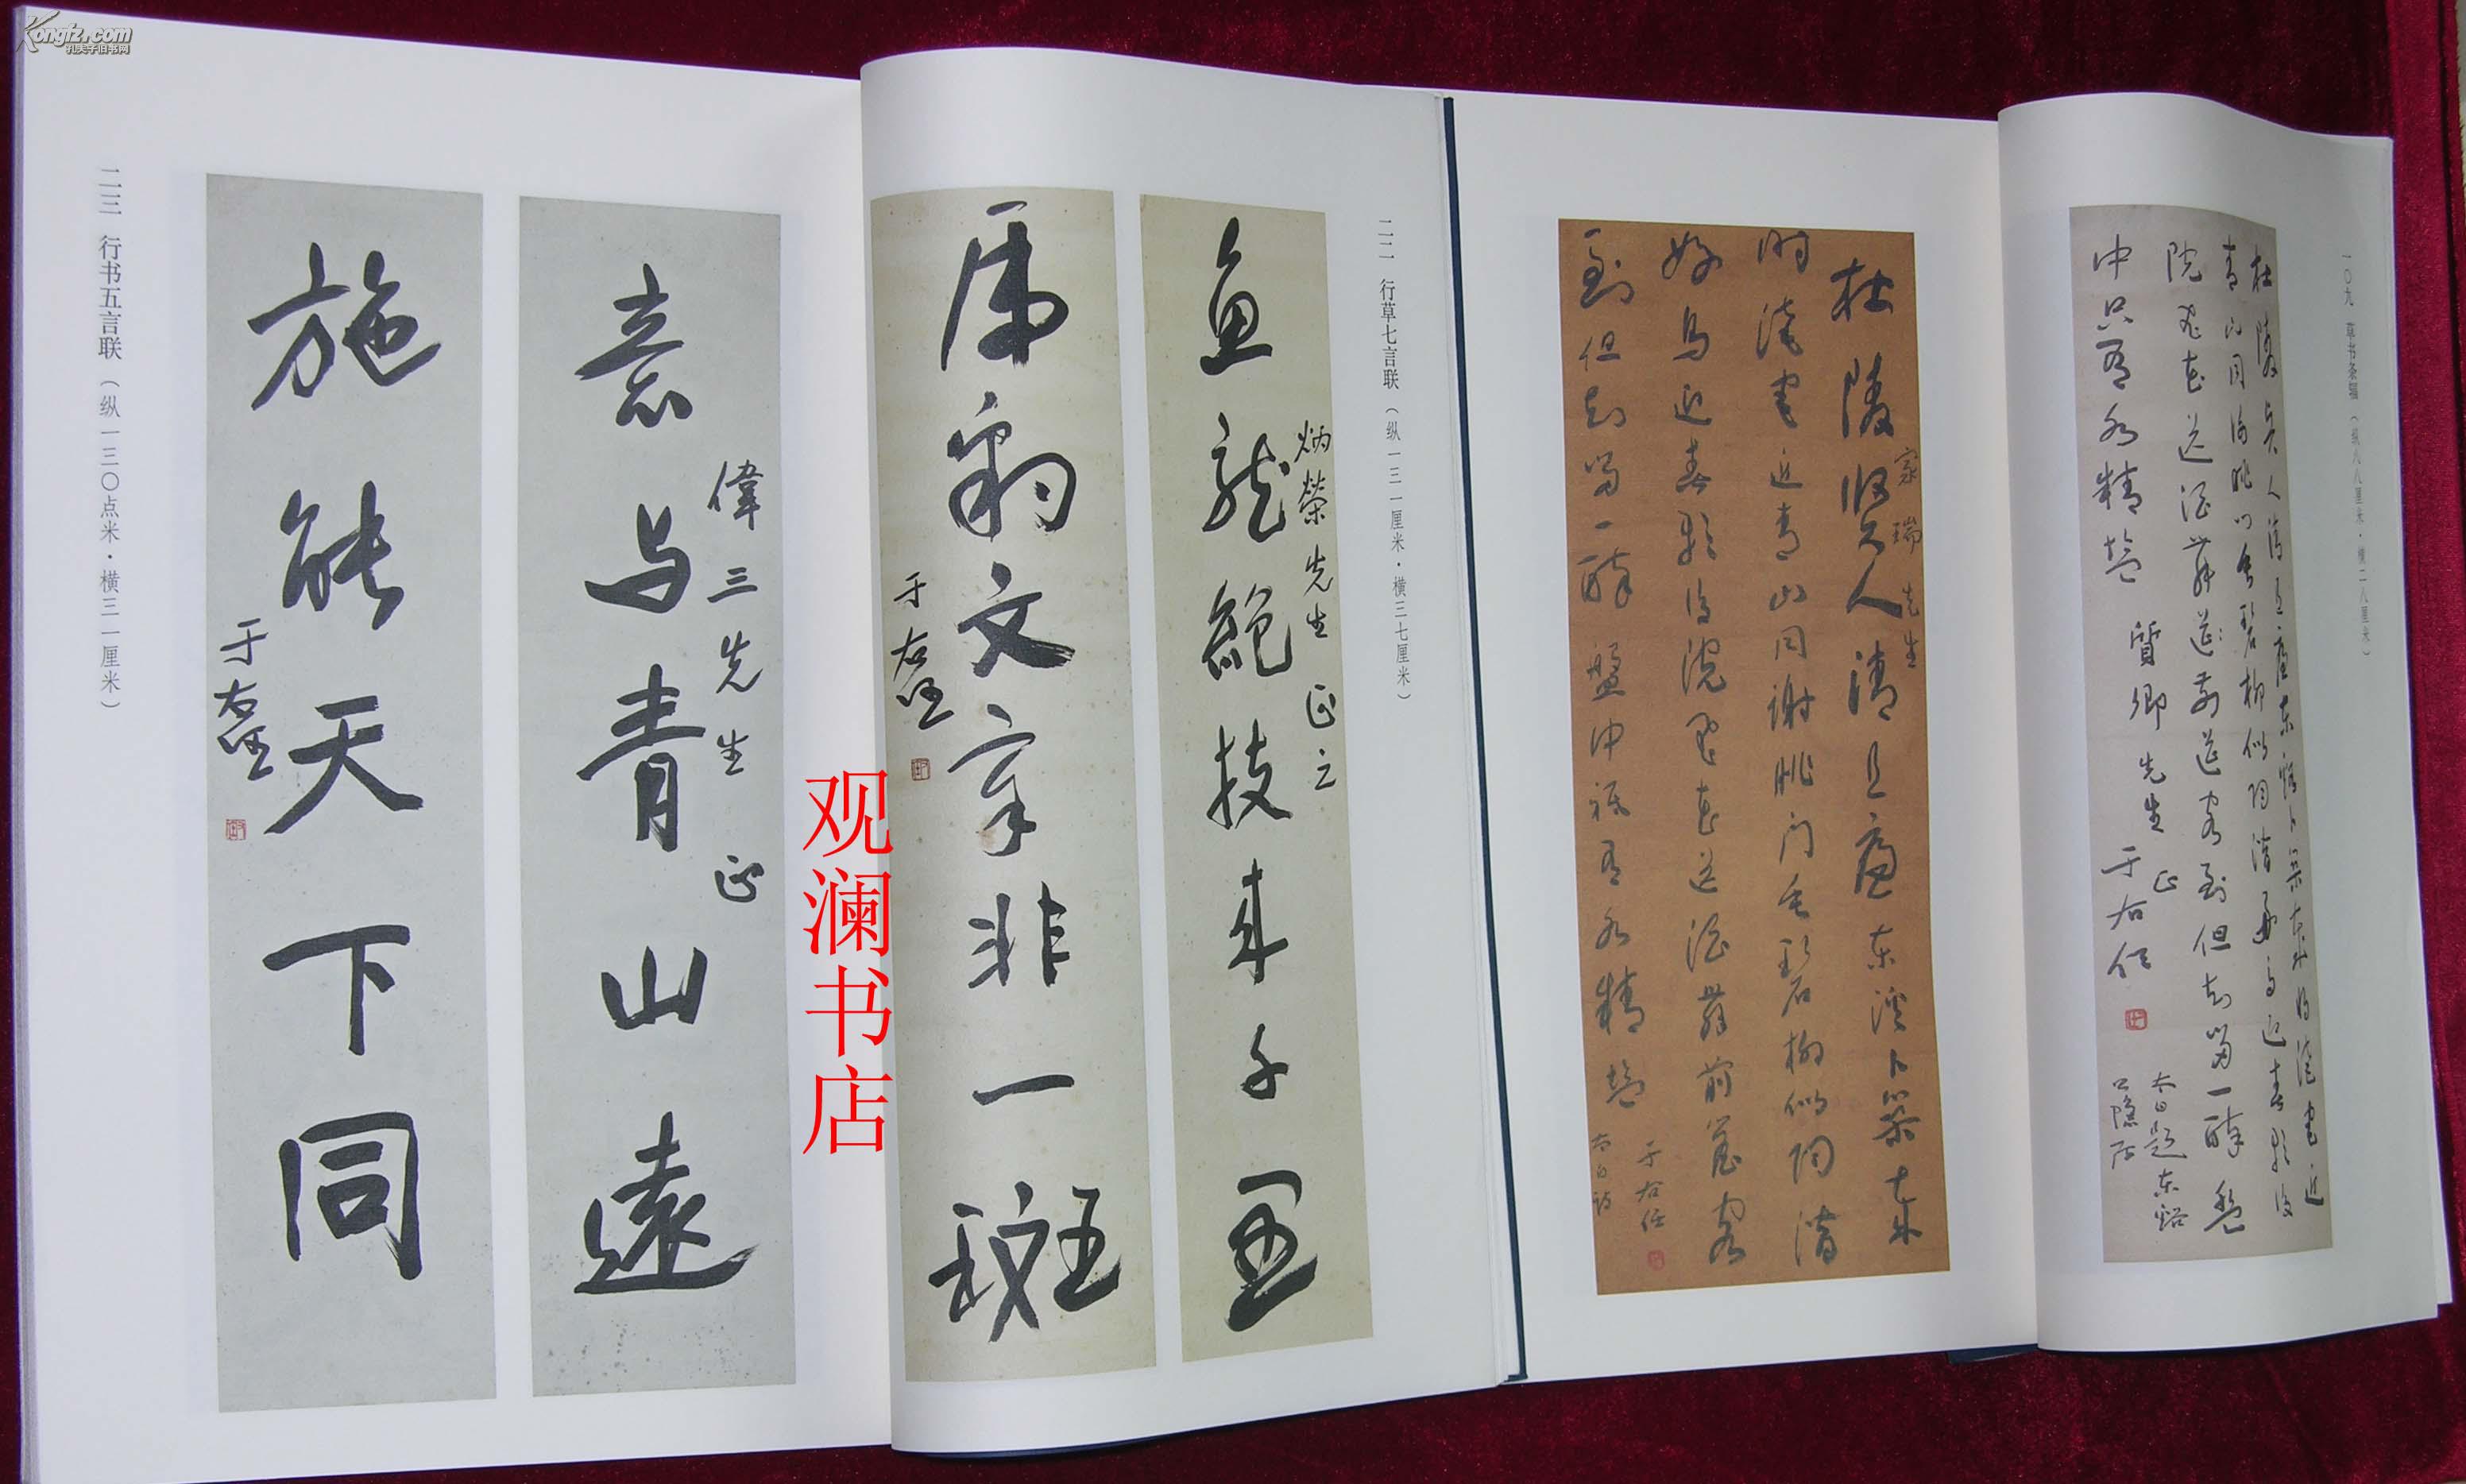 Kongfz.com
孔夫子旧书网
一〇九 草书条幅（纵八八厘米·横二八厘米）
杜陵賢人清且廉東谿卜築歲将淹宅近
青山同谢朓门垂碧柳似陶潛好鸟迎春歌後
院飛花送酒舞前簷客到但知留一醉盤
中只有水精盐
質卿先生正
于右任
太白題東谿
公隱居
家瑞先生
杜陵賢人清且廉東溪卜築歲
将淹宅近青山同谢朓门垂碧柳似陶潛
好鸟迎春歌後院飛花送酒舞前簷客
到但知留一醉盤中祇有水精盐
于右任
太白诗
二二 行草七言联（纵一三一厘米·横三七厘米）
炳榮先生正之
魚龍絕技来千里
虎豹文章非一斑
于右任
二三 行书五言联（纵一三〇点米·横三一厘米）
偉三先生正
意与青山遠
施能天下同
于右任
观澜书店